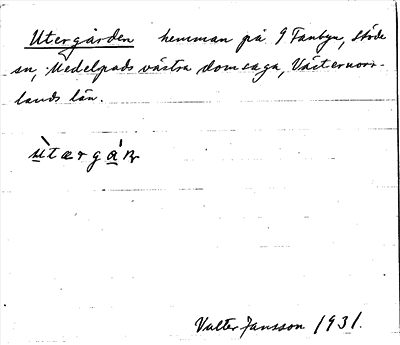 Utergården hemman på 9 Fanbyn, Stöde
sn, Medelpads västra domsaga, Västernorr-
lands län.
ùtærgáɴ
Valter Jansson 1931.